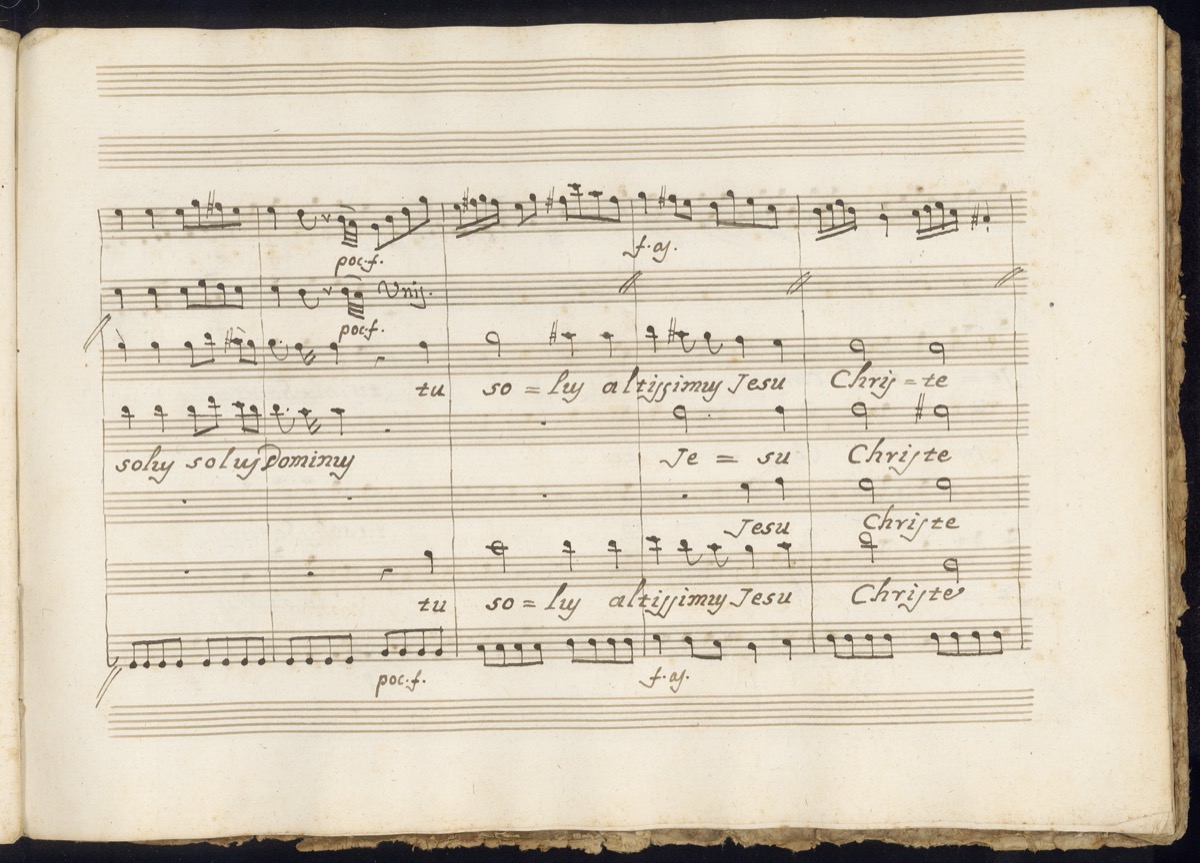 poc. f.
f. as.
Unis.
poc. f.
tu so = lus altissimus Jesu Chris = te
solus solus Dominus Je = su Christe
Jesu Christe
tu so = lus altissimus Jesu Christe
poc. f.
f. as.